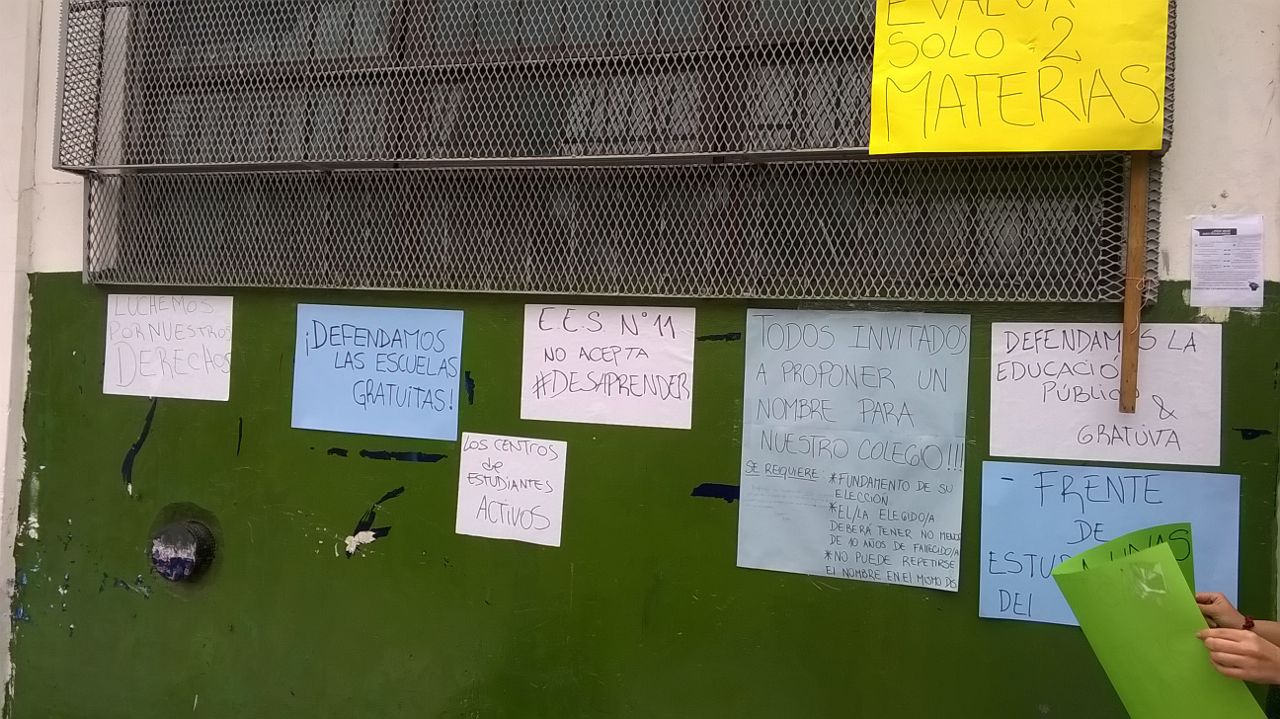 EVALUA
SOLO 2
MATERIAS
LUCHEMOS
POR NUESTROS
DERECHOS
¡DEFENDAMOS
LAS ESCUELAS
GRATUITAS!
E.E.S N°11
NO ACEPTA
#DESAPRENDER
LOS CENTROS
de
ESTUDIANTES
ACTIVOS
TODOS INVITADOS
A PROPONER UN
NOMBRE PARA
NUESTRO COLEGIO!!!
SE REQUIERE: *FUNDAMENTO DE SU
ELECCIÓN
*EL/LA ELEGIDO/A
DEBERÁ TENER NO MENOS
DE 10 AÑOS DE FALLECIDO/A
*NO PUEDE REPETIRSE
EL NOMBRE EN EL MISMO DIS
DEFENDAMOS LA
EDUCACIÓ
PÚBLICA
&
GRATUITA
- FRENTE
DE
ESTU
DEL